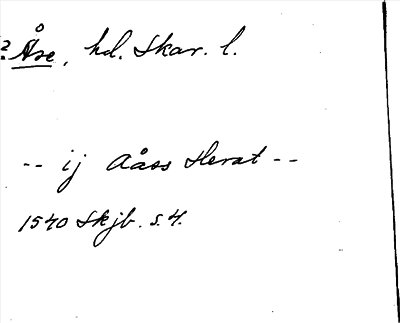 2 Åse, hd. Skar. l.
-- ij Aåss Herat --
1540 Skjb. s. 4.